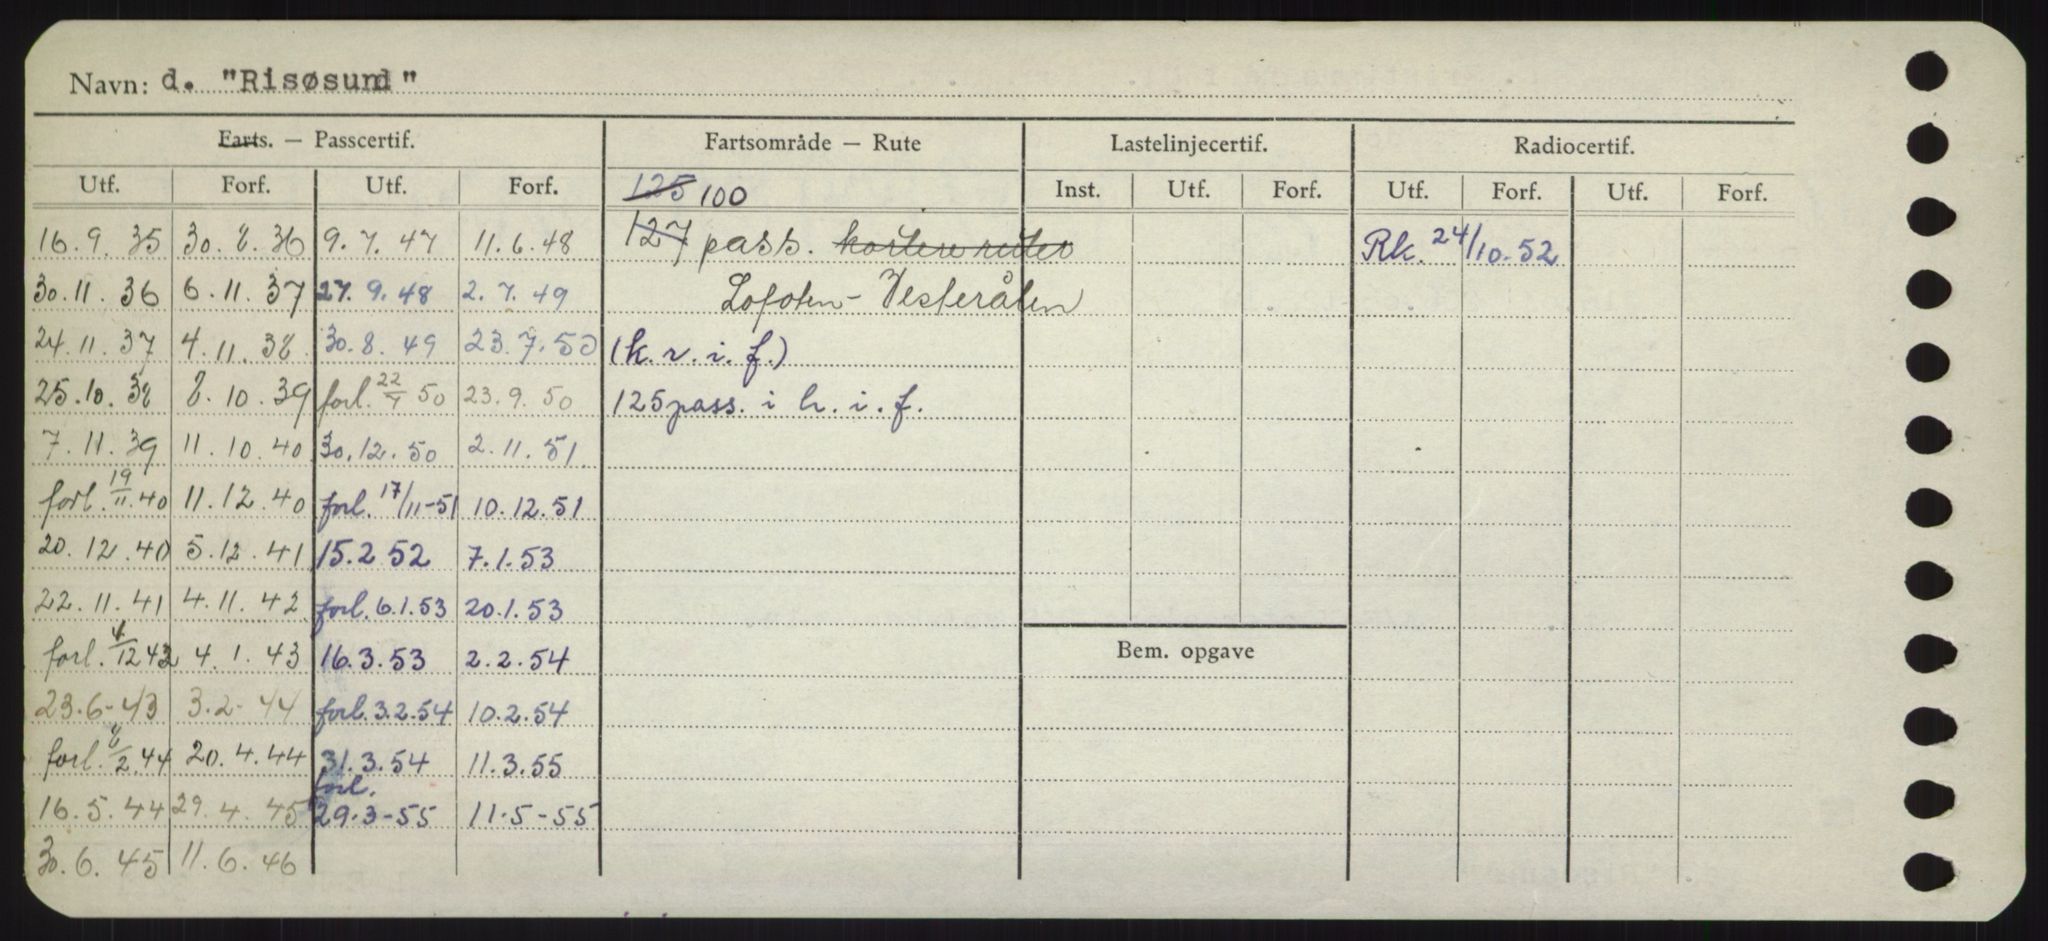 Navn: d. "Risøsund"
Farts. — Passcertif. Fartsområde — Rute Lastelinjecertif. Radiocertif.
Utf. Forf. Utf. Forf. 125 100 Inst. Utf. Forf. Utf. Forf. Utf. Forf.
16.9.35 30.8.36 9.7.47 11.6.48 127 pass. kortere ruter Rk. 24/10-52
30.11.36 6.11.37 27.9.48 2.7.49 Lofoten - Vesterålen
24.11.37 4.11.38 30.8.49 23.7.50 (k.r.i.f.)
25.10.38 8.10.39 forl. 22/7 50 23.9.50 125 pass. i h.i.f.
7.11.39 11.10.40 30.12.50 2.11.51
forl. 19/11.40 11.12.40 forl. 17/11-51 10.12.51
20.12.40 5.12.41 15.2.52 7.1.53
22.11.41 4.11.42 forl. 6.1.53 20.1.53
forl. 4/12 42 4.1.43 16.3.53 2.2.54 Bem. opgave
23.6-43 3.2-44 forl. 3.2.54 10.2.54
forl. 8/2.44 20.4.44 31.3.54 11.3.55
forl.
16.5.44 29.4.45 29.3-55 11.5-55
30.6.45 11.6.46